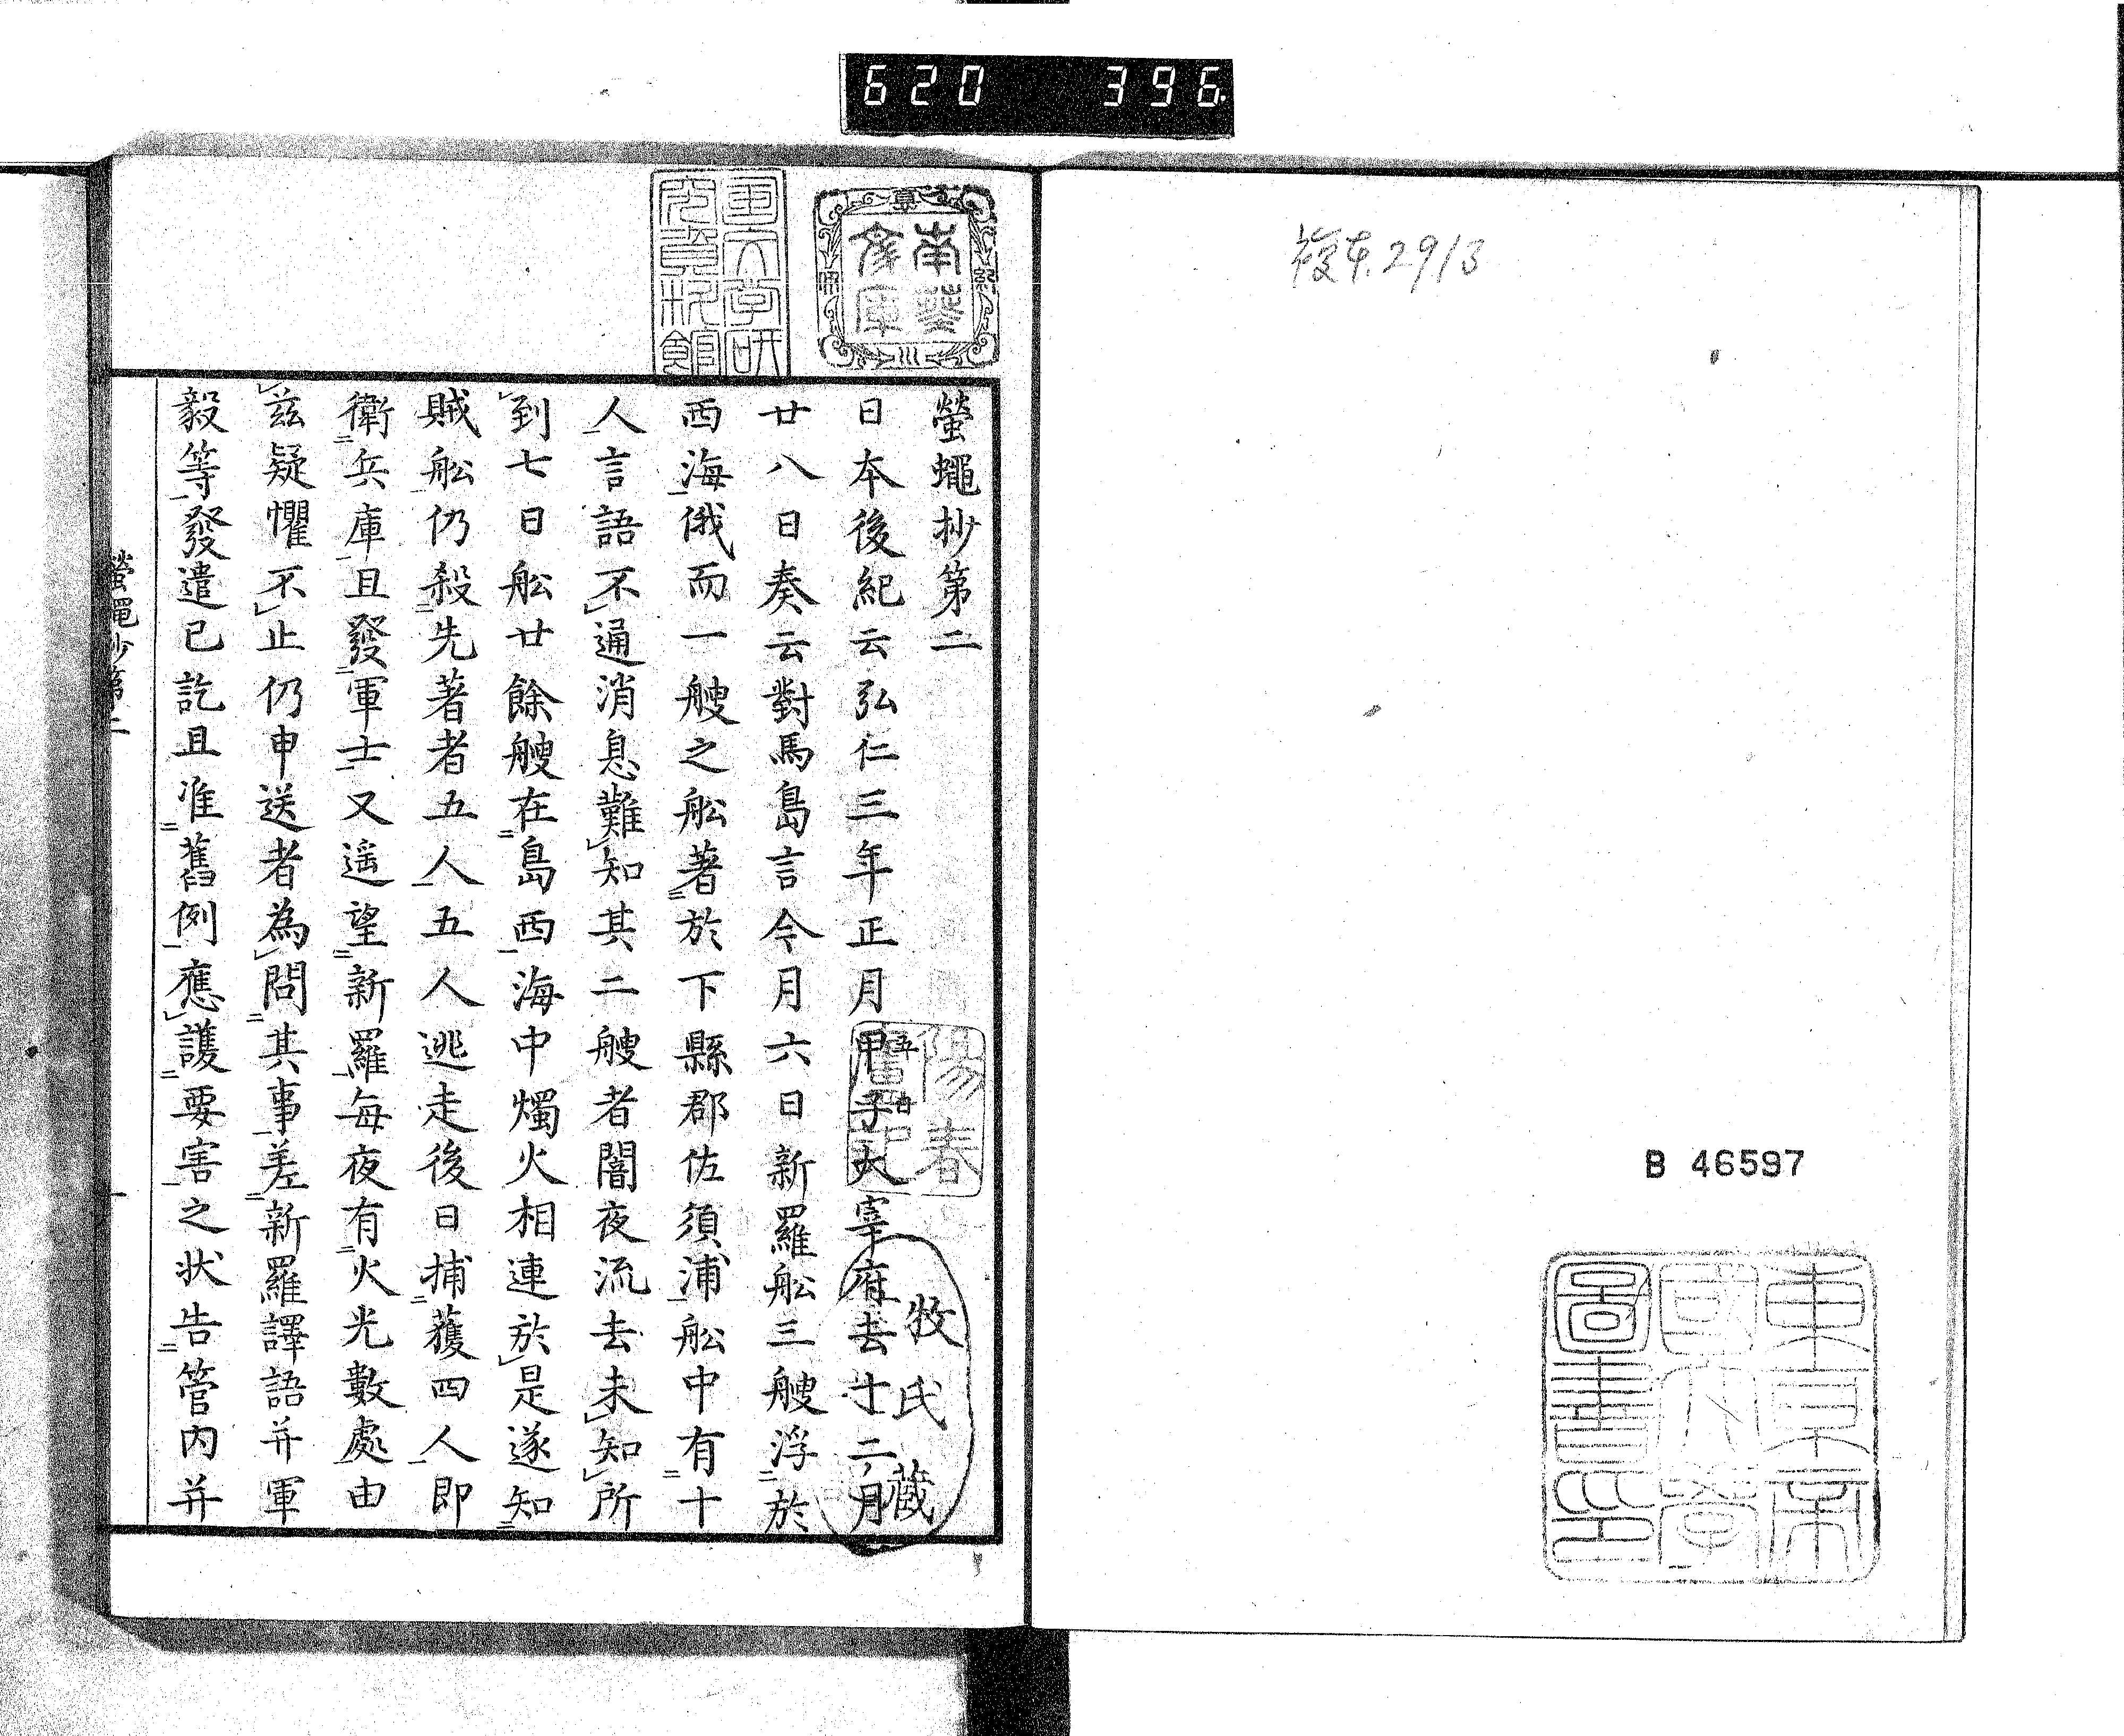 620 396
複本.2913
B 46597
東京帝
國大學
圖書印
南葵
文庫
國文学研
究資料館
陽春
廬記
牧氏蔵
螢蠅抄第二
日本後紀云弘仁三年正月甲子五日大宰府去十二月
廿八日奏云對馬島言今月六日新羅舩三艘浮於
西海俄而一艘之舩著於下縣郡佐須浦舩中有十
人言語不通消息難知其二艘者闇夜流去未知所
到七日舩廿餘艘在島西海中燭火相連於是遂知
賊舩仍殺先著者五人五人逃走後日捕獲四人即
衛兵庫且發軍士又遥望新羅毎夜有火光數處由
茲疑懼不止仍申送者為問其事差新羅譯語并軍
毅等發遣已訖且准舊例應護要害之状告管内并
螢蠅抄第二
一